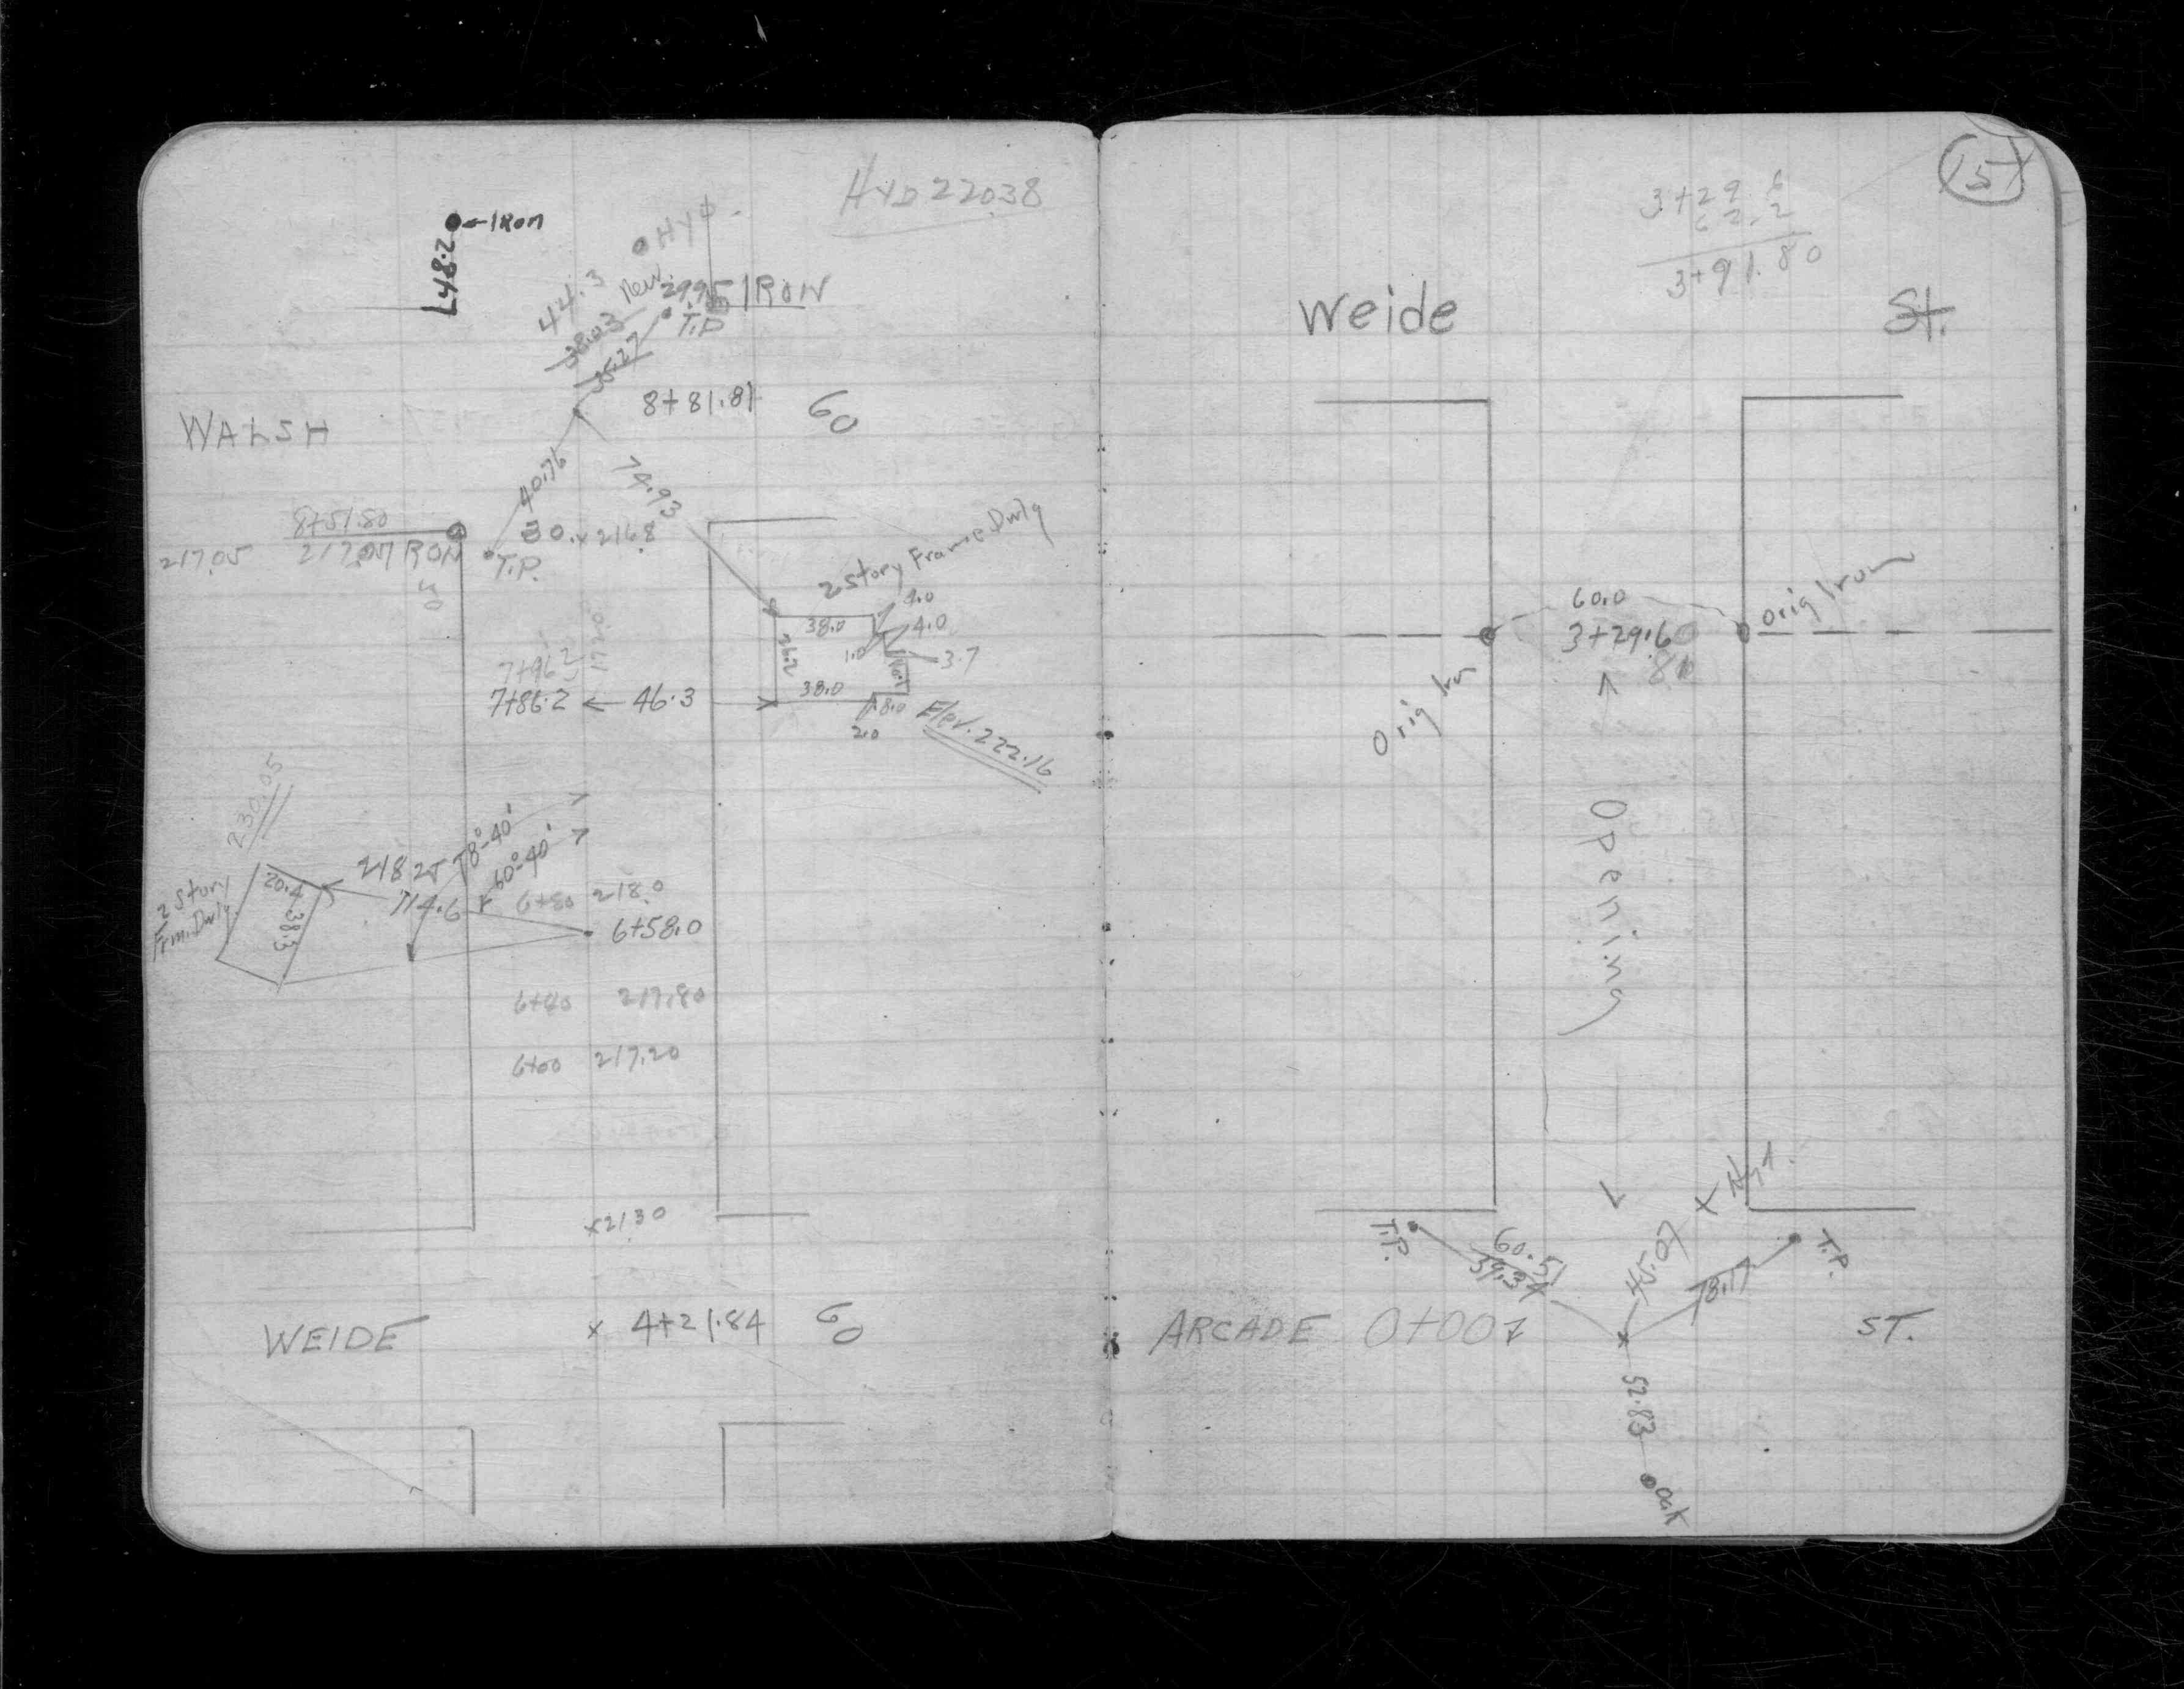 HYD 220.38
Iron
L48.2
HYD.
New
44.3
38.03
35.27
29.95 IRON
T.P.
8+81.81 60
WALSH
40.76
74.93
8+51.80
217.05
IRON
T.P.
30. x 216.8
2 Story Frame Dwlg
38.0
4.0
4.0
1.0
3.7
26.2
38.0
8.0
2.0
7+96.2
7+86.2 ← 46.3
Elev. 222.16
230.05
218.25
78°-40'
60°-40'
2 Story
Frm. Dwlg
20.4
38.3
114.6
6+80 218.0
6+58.0
6+40 217.80
6+00 217.20
x 213.0
WEIDE x 4+21.84 60
15
3+29.6
62.2
3+91.80
Weide St.
60.0
3+29.60
Orig Iron
Orig Iron
Opening
x Hyd.
T.P.
60.51
39.34
45.07
78.17
T.P.
ARCADE 0+00 ST.
52.83
Oak